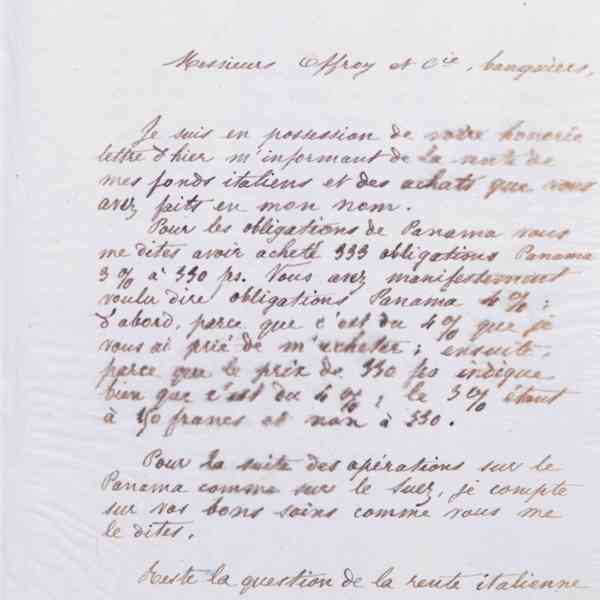 Messieurs Offroy et Cie, banquiers,
Je suis en possession de votre honorée
lettre d'hier m'informant de la vente de
mes fonds italiens et des achats que vous
avez faits en mon nom.
Pour les obligations de Panama vous
me dites avoir acheté 333 obligations Panama
3 % à 330 frs. Vous avez manifestement
voulu dire obligations Panama 4 % ;
d'abord, parce que c'est du 4 % que je
vous ai prié de m'acheter ; ensuite,
parce que le prix de 330 frs indique
bien que c'est du 4 % ; le 3 % étant
à francs et non à 330.
Pour la suite des opérations sur le
Panama comme sur le Suez, je compte
sur vos bons soins comme vous me
le dites.
Reste la question de la rente italienne